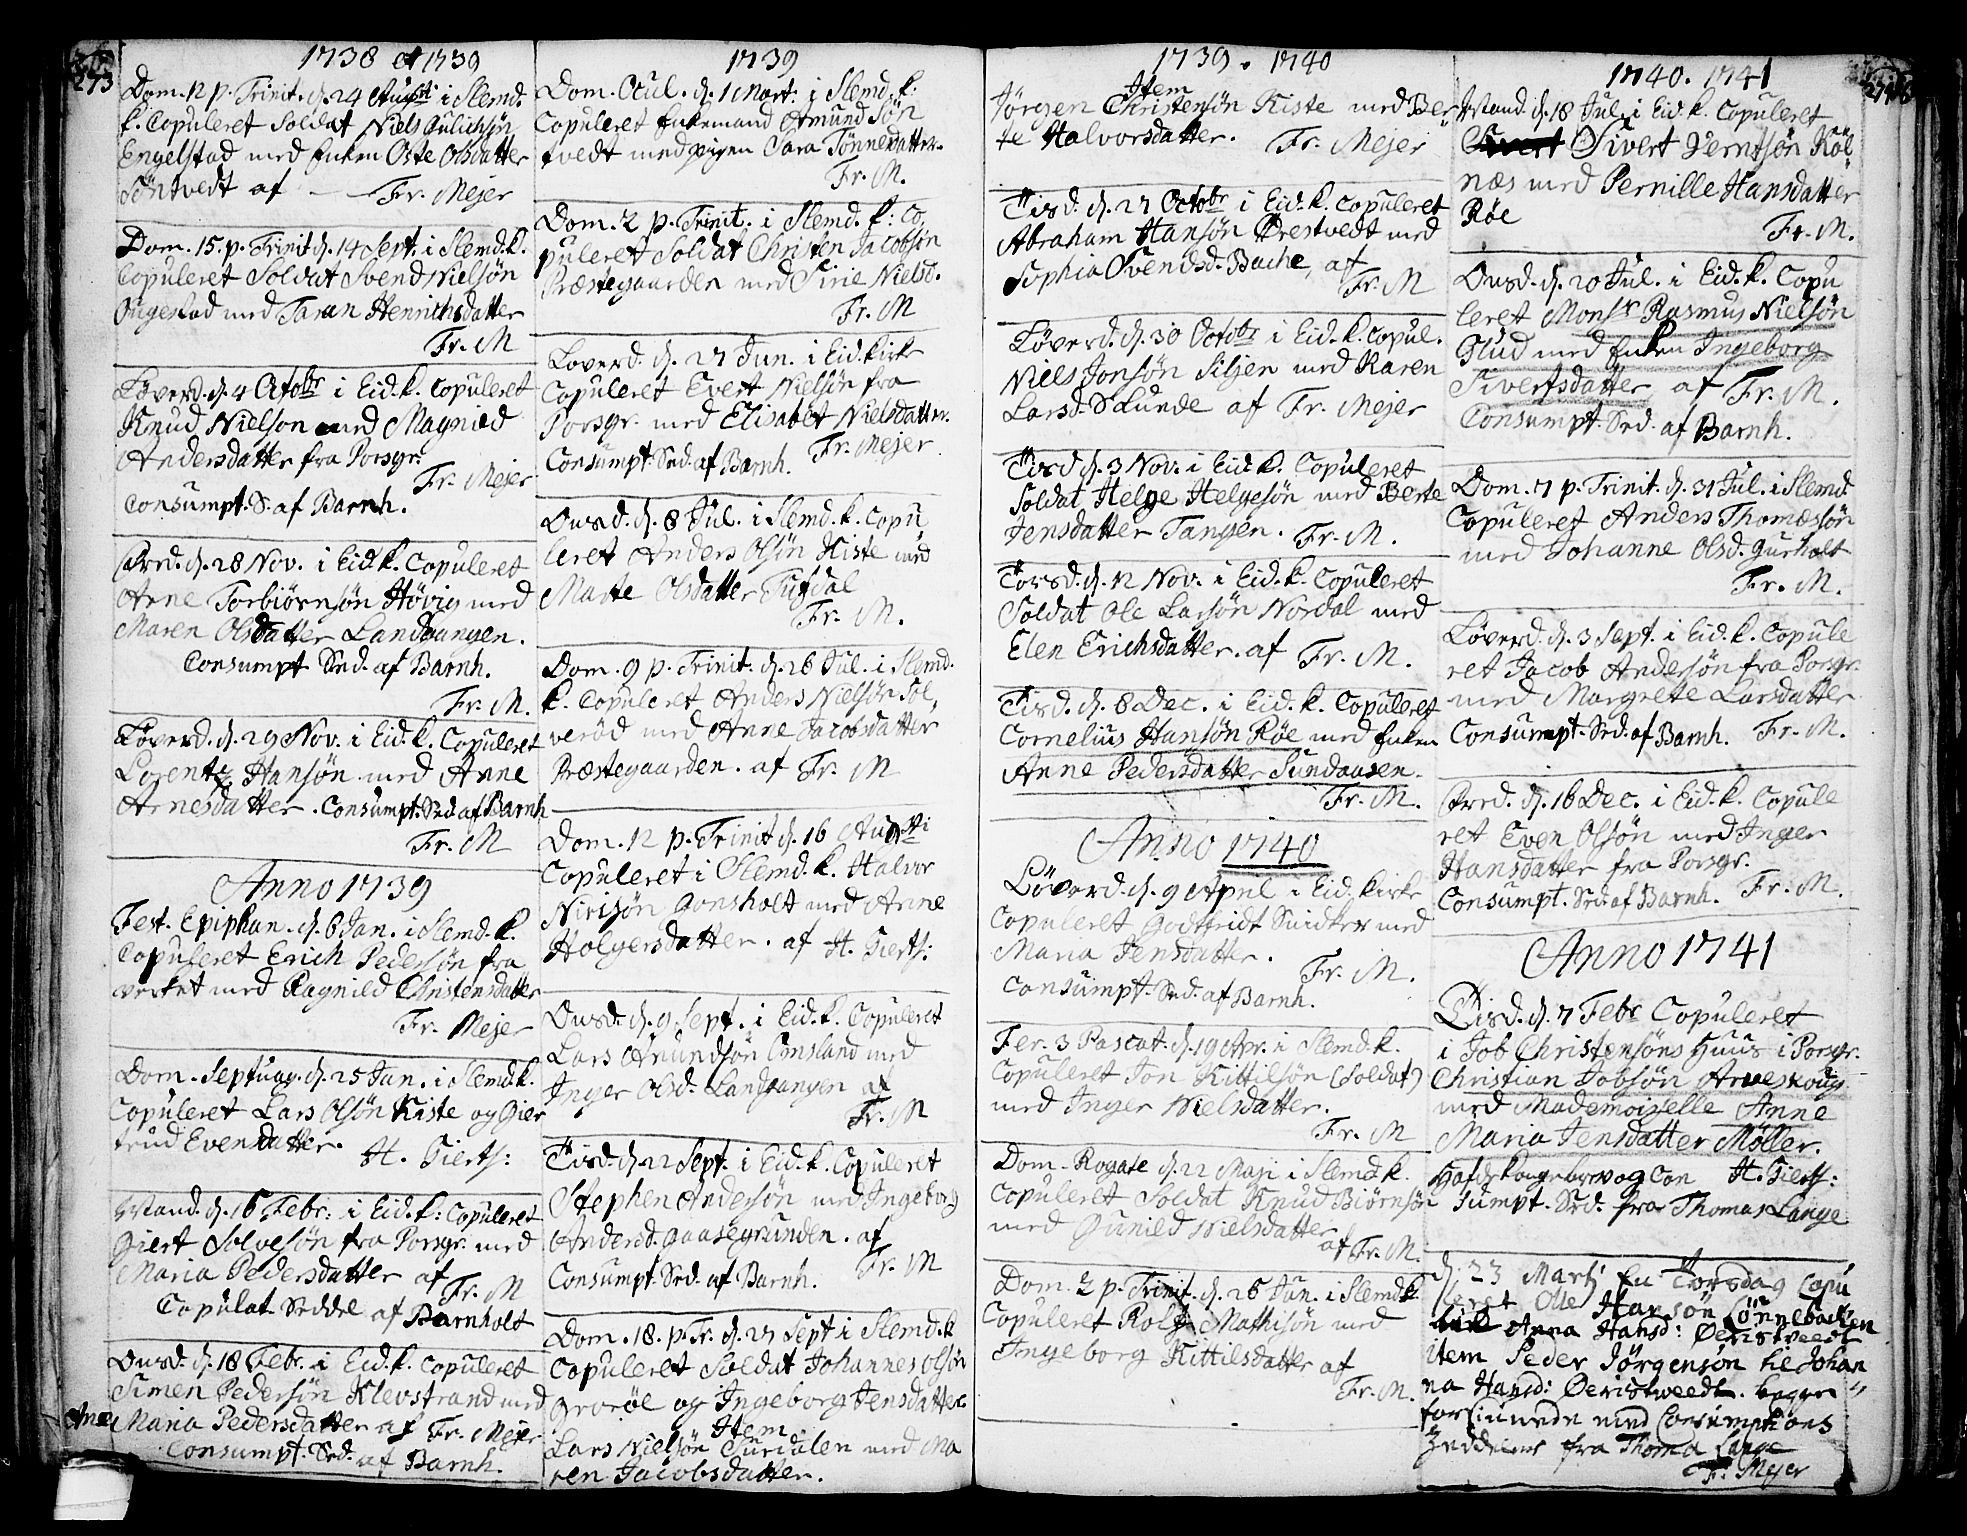 273
1738 et 1739
Dom. 12 p. Trinit. d. 24 Aug: i Slemd.
k. Copuleret Soldat Niels Gulichsøn
Engelstad med Enken Oste Olsdatter
Söntvedt af — Fr. Mejer
Dom. 15. p. Trinit d. 14 Sept. i Slemd. k.
Copuleret Soldat Svend Nielsøn
Ougestad med Taran Henrichsdatter
Fr. M
Løverd. d. 4 Octobr i Eid. k. Copuleret
Knud Nielson med Magnild
Andersdatter fra Porsgr.
Fr. Mejer
Consumpt. S. af Barnh.
Fred. d. 28 Nov. i Eid. k. Copuleret
Arne Torbiørnsøn Høvig med
Maren Olsdatter Landvangen.
Consumpt Sed. af Barnh.
Fr. M.
Løverd. d. 29 Nov. i Eid. k. Copuleret
Lorentz Hansøn med Anne
Arnesdatter. Consumpt. Sed. af Barnh
Fr. M
Anno 1739
Fest. Epiphan. d. 6 Jan. i Slemd. k.
Copuleret Erich Pedersøn fra
verket med Ragnild Christensdatter
Fr. Mejer
Dom. Septuag. d. 25 Jan. i Slemd. k.
Copuleret Lars Olsøn Kiste og Gier
trud Evensdatter.
H. Gierts:
Mand. d. 16 Febr: i Eid. k: Copuleret
Giert Solvesøn fra Porsgr. med
Maria Pedersdatter af
Fr. M
Copulat. Seddel af Barnholt
Onsd. d. 18 Febr. i Eid. k. Copuleret
Simen Pedersøn Klevstrand med
Anne Maria Pedersdatter af Fr. Mejer
Consumpt. Sed. af Barnh.
1739
Dom. Ocul. d. 1 Mart: i Slemd. k:
Copuleret Enkemand Amund Søn
tvedt med pigen Sara Tønnesdatter.
Fr. M.
Dom. 2 p. Trinit. i Slemd. k: Co
puleret Soldat Christen Jacobsøn
Præstegaarden med Sirie Nielsd.
Fr. M
Løverd. d. 27 Jun. i Eid. kirke
Copuleret Evert Nielsøn fra
Porsgr. med Elisabet Nielsdatter.
Consumpt. Sed. af Barnh. Fr. Mejer
Onsd. d. 8 Jul. i Slemd. k. Copu
leret Anders Olsøn Kiste med
Marte Olsdatter Tufdal
Fr. M.
Dom. 9 p. Trinit. d. 26 Jul. i Slemd.
k. Copuleret Anders Nielsøn Sol
verød med Anne Jacobsdatter
Præstegaarden. af Fr. M
Dom. 12 p. Trinit d. 16 Augusti
Copuleret i Slemd. k. Halvor
Nielsøn Gonsholt med Anne
Holgersdatter. af H. Gierts:
Onsd. d. 9 Sept. i Eid. k. Copuleret
Lars Anundsøn Omsland med
Inger Olsd. Landvangen af
Fr. M
Tisd. d. 22 Sept. i Eid. k. Copuleret
Stephen Andersøn med Ingeborg
Andersd. Gaasegrunden. af
Consumpt. Sed. af Barnh. Fr. M
Dom. 18. p. Tr. d. 27 Sept i Slemd. k
Copuleret Soldat Johannes Olsøn
Grorøl og Ingeborg Jensdatter
Item
Lars Nielsøn Surdalen med Ma
ren Jacobsdatter.
1739. 1740
Item
Jørgen Christensøn Kiste med Ber
te Halvorsdatter. Fr. Mejer
Tisd. d. 27 Octobr i Eid. k. Copuleret
Abraham Hansøn Ørestvedt med
Sophia Svendsd. Bache, af
Fr. M
Løverd. d. 30 Octobr i Eid. k. Copul.
Niels Jonsøn Siljen med Karen
Larsd. S Lunde af Fr. Mejer
Tisd d. 3 Nov. i Eid. k. Copuleret
Soldat Helge Helgesøn med Berte
Jensdatter Tangen. Fr. M.
Torsd. d. 12 Nov. i Eid. k. Copuleret
Soldat Ole Larsøn Nordal med
Elen Erichsdatter. af Fr. M.
Tisd. d. 8 Dec. i Eid. k. Copuleret
Cornelius Hansøn Røe med Enken
Anne Pedersdatter Sundaasen.
Fr. M.
Anno 1740
Løverd. d. 9 April i Eid. kirke
Copuleret Godtfridt Snidker med
Maria Jensdatter.
Fr. M.
Consumpt. Sed. af Barnh.
Fer. 3 Pascat. d. 19 Apr. i Slemd. k.
Copuleret Jon Kittilsøn (Soldat)
med Inger Nielsdatter.
Fr. M
Dom. Rogate d. 22 Maji i Slemd. k.
Copuleret Soldat Knud Biørnsøn
med Gunild Nielsdatter
af Fr. M.
Dom. 2 p. Trinit. d. 26 Jun. i Slemd. k
Copuleret Rolf Mathisøn med
Ingeborg Kittilsdatter af
Fr. M.
1740. 1741
Mand. d. 18 Jul. i Eid. k. Copuleret
Sivert Berntsøn Køl
næs med Pernille Hansdatter
Røe
Fr. M.
Onsd. d. 20 Jul. i Eid. k. Copu
leret Monsr Rasmus Nielsøn
Glud med Enken Ingeborg
Sivertsdatter af Fr. M.
Consumpt. Sed. af Barnh.
Dom. 7 p. Trinit. d. 31 Jul. i Slemd.
Copuleret Anders Thomæsøn
med Johanne Olsd. Gurholt
Fr. M.
Løverd. d. 3 Sept. i Eid. k. Copule
ret Jacob Andersøn fra Porsgr.
med Margrete Larsdatter
Consumpt. Sed. af Barnh. Fr. M.
Fred. d. 16 Dec. i Eid. k. Copule
ret Even Olsøn med Inger
Hansdatter fra Porsgr.
Consumpt. Sed. af Barnh. Fr. M.
Anno 1741
Tisd. d. 7 Febr Copuleret
i Job Christensøns Huus i Porsgr.
Christian Jobsøn Arveskoug
med Mademoiselle Anne
Maria Jensdatter Møller.
Hafde Kongebrev og Con H. Gierts:
sumpt. Sed. fra Thomas Lange
d. 23 Martj en Torsdag Copu
leret Olle Hansøn Lønnebacken
Anna Hansd: Øeristweedt
Item Peder Jörgensøn til Johan
na Hansd: Øeristweedt. begge
forsiunede med Consumptions
Zeddeler fra Thoma Lange
F. Mejer